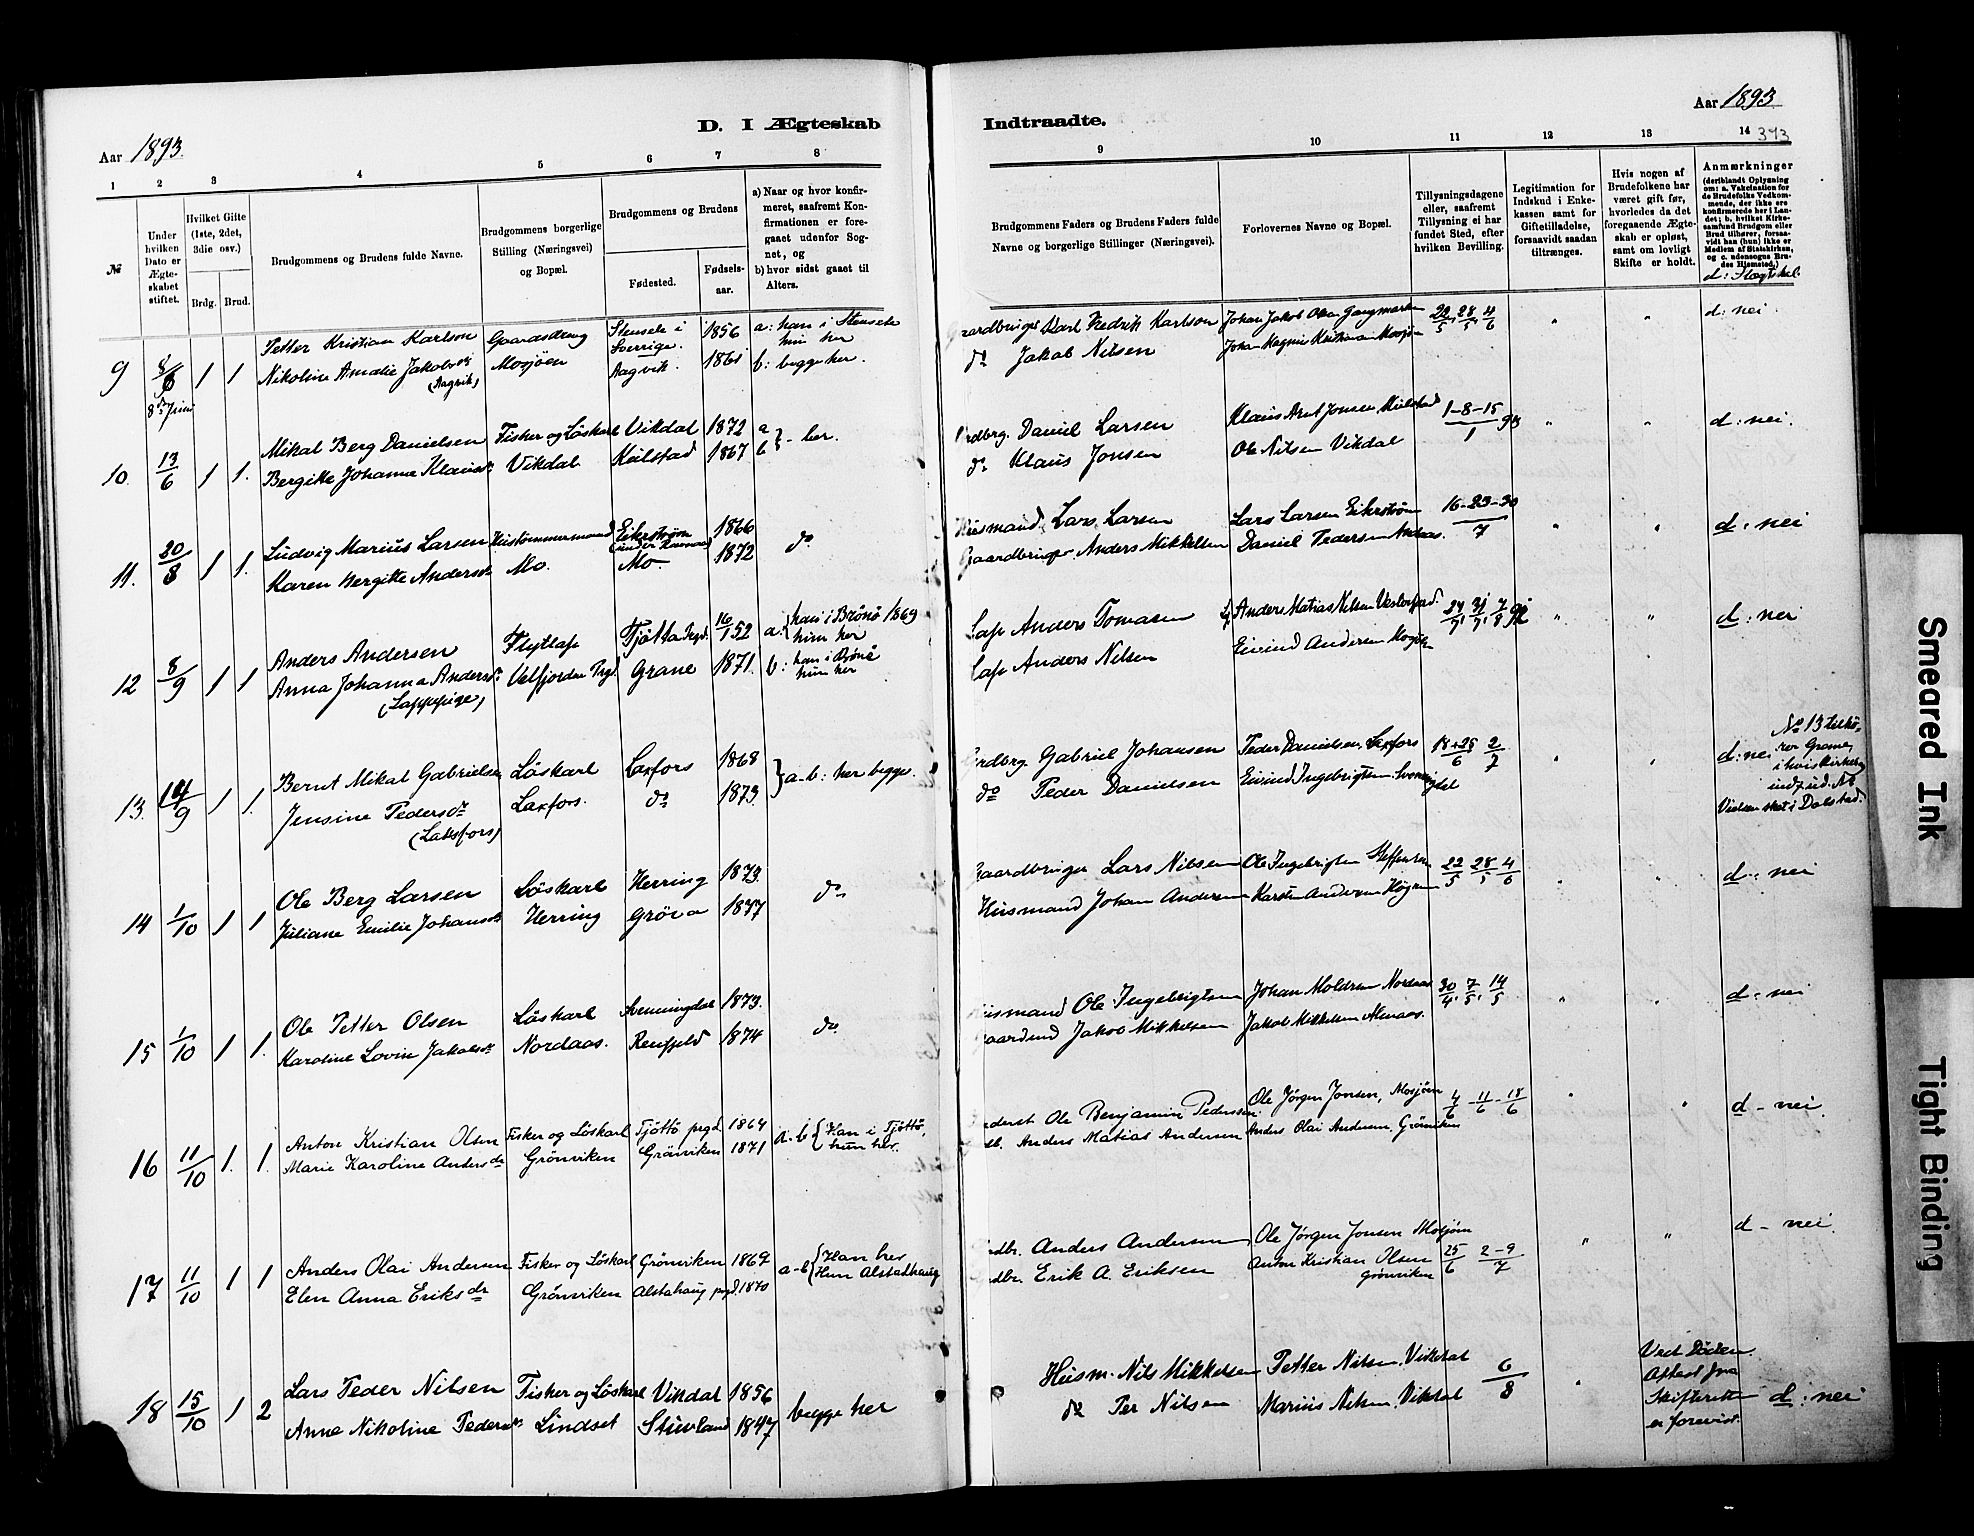 Aar 1893.
D. I Ægteskab
Indtraadte.
Aar 1893
373
1 2 3 4 5 6 7 8
9 10 11 12 13 14
№
Under hvilken Dato er Ægteskabet stiftet.
Hvilket Gifte (1ste, 2det, 3die osv.)
Brdg. Brud.
Brudgommens og Brudens fulde Navne.
Brudgommens borgerlige Stilling (Næringsvei) og Bopæl.
Brudgommens og Brudens
Fødested.
Fødselsaar.
a) Naar og hvor konfirmeret, saafremt Konfirmationen er foregaaet udenfor Sognet, og
b) hvor sidst gaaet til Alters.
Brudgommens Faders og Brudens Faders fulde Navne og borgerlige Stillinger (Næringsvei).
Forlovernes Navne og Bopæl.
Tillysningsdagene eller, saafremt Tillysning ei har fundet Sted, efter hvilken Bevilling.
Legitimation for Indskud i Enkekassen samt for Giftetilladelse, forsaavidt saadan tiltrænges.
Hvis nogen af Brudefolkene har været gift før, hvorledes da det foregaaende Ægteskab er opløst, samt om lovligt Skifte er holdt.
Anmærkninger
(deriblandt Oplysning om: a. Vakcination for de Brudefolks Vedkommende, der ikke ere konfirmerede her i Landet; b. hvilket Kirkesamfund Brudgom eller Brud tilhører, forsaavidt han (hun) ikke er Medlem af Statskirken, og c. udensogns Brudes Hjemsted.)
d: Slægtskab.
9 8/6 1 1 Petter Kristian Karlson Gaardsdreng Stensele i Sverrige. 1856 a: han i Stensele hun her
8de Juni Nikoline Amalie Jakobsdr (Aagvik) Mosjøen Aagvik. 1861 b: begge her.
Gaardbruger Karl Fredrik Karlson Johan Jakob Olsen 28/5, 4/6 " " d: nei.
do Jakob Nilsen Johan Magnus Kristiansen Mosjøen
10. 13/6 1 1. Mikal Berg Danielsen Fisker og Löskarl Vikdal 1872 a
Bergitte Johanna Klausdr Vikdal Kulstad 1867 b } - her.
Grdbrg. Daniel Larsen Klaus Arnt Jonsen Kulstad 1-8-15/1 93 " " d: nei.
do Klaus Jonsen Ole Nilsen Vikdal
11. 20/8 1 1. Ludvig Marius Larsen Hustømmermand Eikrstrøm 1866 do
Karen Bergitte Andersdr Mo. Mo. 1872
Husmand Lars Larsen Lars Larsen Eikrstrøm 16-23-30/7 " " d: nei
Gaardbruger Anders Mikkelsen Daniel Pedersen
12 8/9 1 1 Anders Andersen Flytlap Tjøtta Prgd. 16/1 52 a: { han i Brönö 1869 hun her
Anna Johanna Andersdr (Lappepige) Velfjorden Prgd. Grane 1871. b: han i Brönö hun her
Lap Anders Tomasen Anders Matias Nilsen 7/8 " " d: nei
Lap Anders Nilsen Eivind Andersen
13. 14/9 1 1. Bernt Mikal Gabrielsen Löskarl Laxfors 1868 } a-b: her begge.
Jensine Pedersdr (Laksfors) Laxfors. do 1873.
Grdbrg. Gabriel Johansen Peder Danielsen Laxfors 18+25/6 2/7 " " d: nei
do Peder Danielsen Eivind Ingebrigtsen Svenningdal
No 13 tilhører Grane, i hvis kirkebog indf. ud. At Vielsen skat i Dolstad.
14 1/10 1 1 Ole Berg Larsen Löskarl Herring 1873. do
Juliane Emilie Johansdr Herring Gröva 1877
Gaardbruger Lars Nilsen Ole Ingebrigtsen 22/5 28/5 4/6 " " d: nei
Husmand Johan Andersen Karsten Andersen
15 1/10 1 1. Ole Petter Olsen Löskarl Svenningdal 1873. do
Karoline Lovise Jakobsdr Nordaas. Renfjeld 1874
Husmand Ole Ingebrigtsen Johan Nordaas 30/4, 7/5, 14/5 " " d: nei
Jakob Mikkelsen Jakob Mikkelsen
16 11/10 1. 1. Anton Kristian Olsen Fisker og Löskarl Tjöttö prgd 1864 a-b { Han i Tjöttö, hun her.
Marie Karoline Andersdr Grönviken Grönviken 1871
Ole Benjamin Pedersen Ole Jörgen Jonsen, Mosjöen 4/6 - 11/6 - 18/6 " " d - nei.
Anders Matias Andersen Anders Olai Andersen, Grönviken
17 11/10 1 1 Anders Olai Andersen Fisker og Löskarl Grönviken 1869 a-b { Han her Hun Alstadhaug
Elen Anna Eriksdr Grönviken Alstahaug prgd. 1870
Grdbr. Anders Andersen Ole Jörgen Jonsen Mosjöen 25/6 2-9/7 " " d - nei.
Grdbr. Erik A. Eriksen Anton Kristian Olsen Grönviken
18 15/10 1 2 Lars Peder Nilsen Fisker og Löskarl Vikdal 1856 begge her
Anne Nikoline Pedersdr Lindset Stuvland 1847
Husm. Nils Mikkelsen Petter Nilsen, Vikdal 6/8 " d: nei
do Per Nilsen Marius Nilsen, Vikdal
Ved Döden Attest fra Skifteretten er forevist.
Smeared Ink
Tight Binding